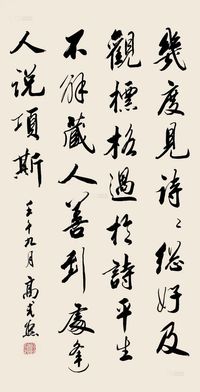 幾度見詩〻總好及
觀標格過於詩平生
不解藏人善到處逢
人説項斯
壬午九月 高式熊